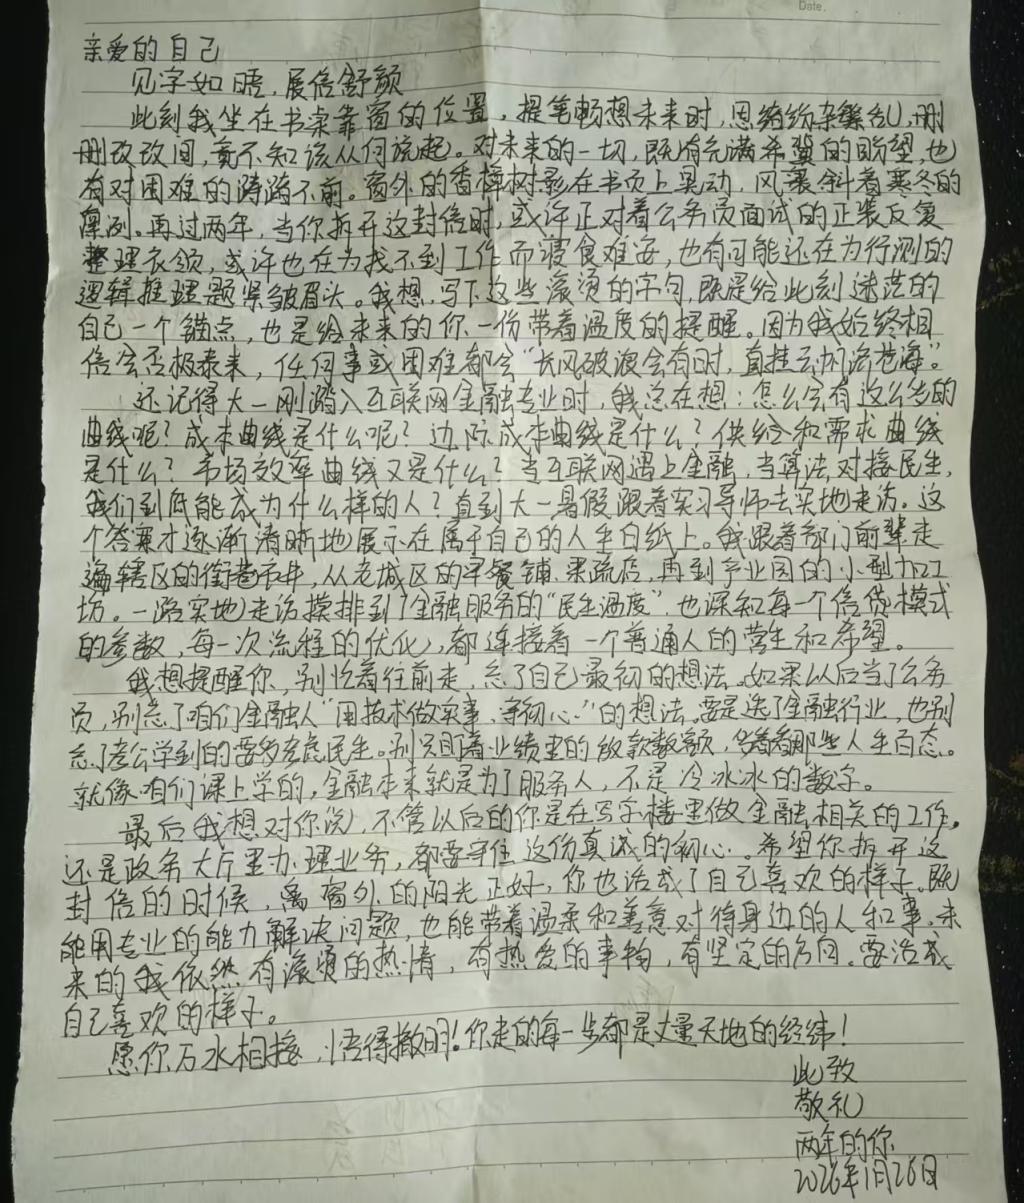 Date.
亲爱的自己
见字如晤，展信舒颜
此刻我坐在书桌靠窗的位置，提笔畅想未来时，思绪纷杂繁乱，删
删改改间，竟不知该从何说起。对未来的一切，既有充满希冀的盼望，也
有对困难的踌躇不前。窗外的香樟树影在书页上晃动，风裹斜着寒冬的
凛冽。再过两年，当你拆开这封信时，或许正对着公务员面试的正装反复
整理衣领，或许也在为找不到工作而寝食难安，也有可能还在为行测的
逻辑推理题紧皱眉头。我想，写下这些滚烫的字句，既是给此刻迷茫的
自己一个锚点，也是给未来的你一份带着温度的提醒。因为我始终相
信会否极泰来，任何事或困难都会“长风破浪会有时，直挂云帆济苍海”
还记得大一刚踏入互联网金融专业时，我总在想：怎么会有这么多的
曲线呢？成本曲线是什么呢？边际成本曲线是什么？供给和需求曲线
是什么？市场效率曲线又是什么？当互联网遇上金融，当算法对接民生，
我们到底能成为什么样的人？直到大一暑假跟着实习导师去实地走访。这
个答案才逐渐清晰地展示在属于自己的人生白纸上。我跟着部门前辈走
遍辖区的街巷市井，从老城区的早餐铺、果蔬店，再到产业园的小型加工
坊。一路实地走访摸排到了金融服务的“民生温度”，也深知每一个信贷模式
的参数，每一次流程的优化，都连接着一个普通人的营生和希望。
我想提醒你，别忙着往前走，忘了自己最初的想法。如果以后当了公务
员，别忘了咱们金融人“用技术做实事、守初心”的想法。要是选了金融行业，也别
忘了老公学到的要多考虑民生。别只盯着业绩里的放款数额，多看看那些人生百态。
就像咱们课上学的，金融本来就是为了服务人，不是冷冰冰的数字。
最后我想对你说，不管以后的你是在写字楼里做金融相关的工作，
还是政务大厅里办理业务，都要守住这份真诚的初心。希望你拆开这
封信的时候，窗外的阳光正好，你也活成了自己喜欢的样子。既
能用专业的能力解决问题，也能带着温柔和善意对待身边的人和事，未
来的我依然有滚烫的热情，有热爱的事物，有坚定的方向。要活成
自己喜欢的样子。
愿你万水相接，悟得澈明！你走的每一步都是丈量天地的经纬！
此致
敬礼
两年的你
2026年1月26日